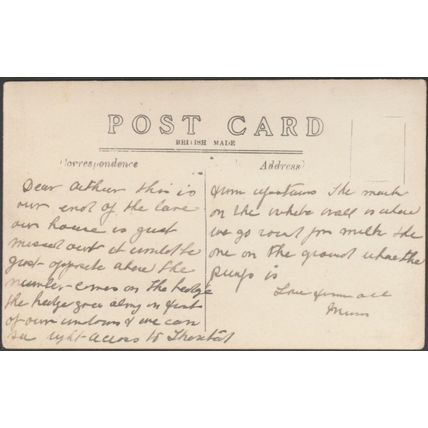 POST CARD
BRITISH MADE
Correspondence
Address
Dear Arthur this is
our end of the lane
our house is just
missed out it would be
just opposite where the
number comes on the hedge
the hedge goes along in front
of our windows & we can
see right across to
from upstairs The mark
on the white wall is where
we go round for milk the
one on the ground where the
pump is
Love from all
Mum